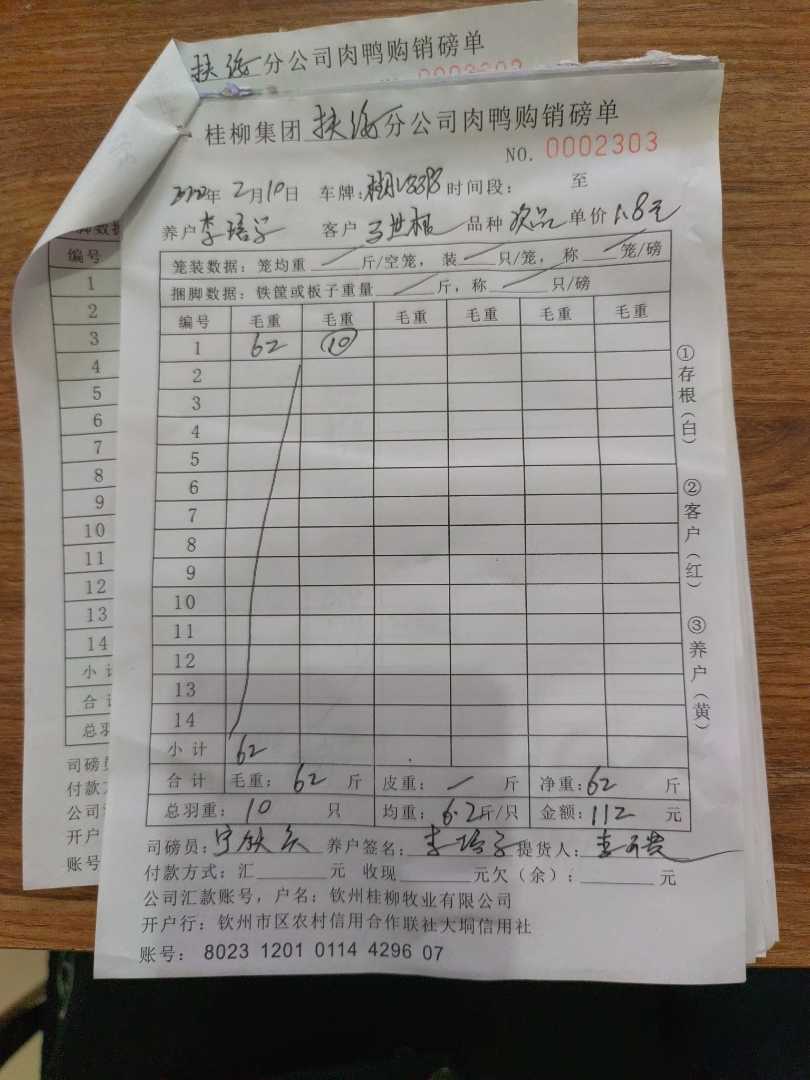 分公司肉鸭购销磅单
桂柳集团 扶绥 分公司肉鸭购销磅单
NO. 0002303
年 2月10日 车牌: 时间段: 至
养户 李培学 客户 品种 次品 单价 1.8元
笼装数据: 笼均重 斤/空笼, 装 只/笼, 称 笼/磅
捆脚数据: 铁筐或板子重量 斤, 称 只/磅
编号 毛重 毛重 毛重 毛重 毛重 毛重
1 62 10
2
3
4
5
6
7
8
9
10
11
12
13
14
小计 62
合计 毛重: 62 斤 皮重: 一 斤 净重: 62 斤
总羽重: 10 只 均重: 6.2斤/只 金额: 112 元
司磅员: 养户签名: 提货人:
付款方式: 汇 元 收现 元欠(余): 元
公司汇款账号, 户名: 钦州桂柳牧业有限公司
开户行: 钦州市区农村信用合作联社大垌信用社
账号: 8023 1201 0114 4296 07
①存根(白)
②客户(红)
③养户(黄)
编号
1
2
3
4
5
6
7
8
9
10
11
12
13
14
小计
合计
总羽
司磅员
付款方
公司
开户
账号